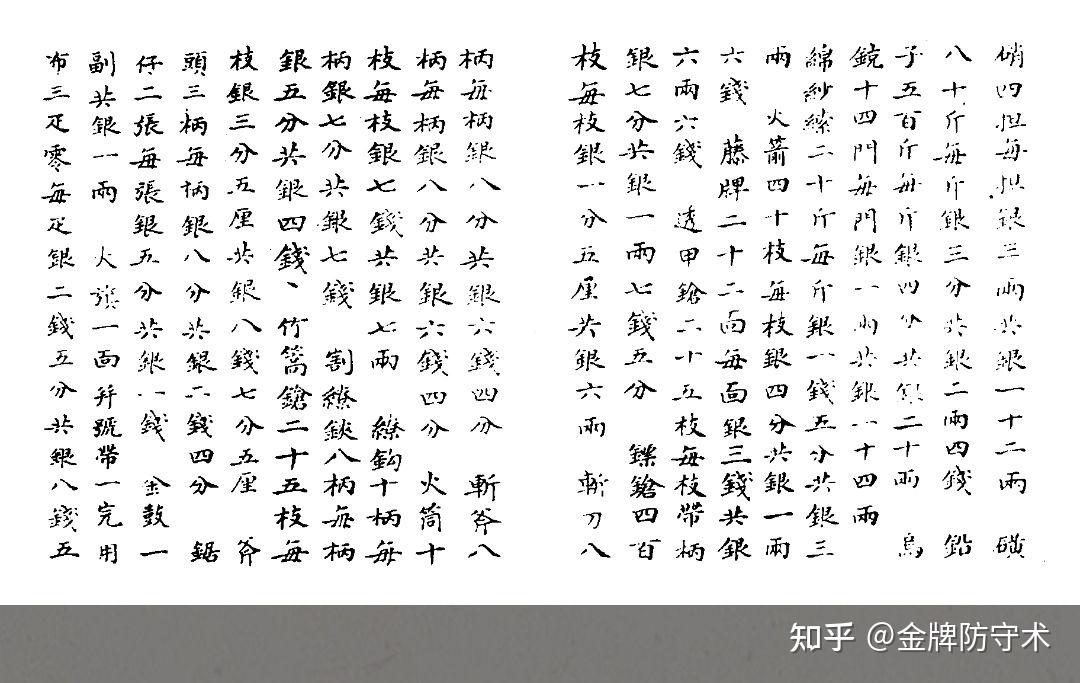 硝四担每担銀三兩共銀一十二兩　磺
八十斤每斤銀三分共銀二兩四錢　鉛
子五百斤每斤銀四分共銀二十兩　鳥
銃十四門每門銀一兩共銀一十四兩
綿紗縧二十斤每斤銀一錢五分共銀三
兩　火箭四十枝每枝銀四分共銀一兩
六錢　藤牌二十二面每面銀三錢共銀
六兩六錢　透甲鎗二十五枝每枝帶柄
銀七分共銀一兩七錢五分　鏢鎗四百
枝每枝銀一分五厘共銀六兩　斬刀八
柄每柄銀八分共銀六錢四分　斬斧八
柄每柄銀八分共銀六錢四分　火筒十
枝每枝銀七錢共銀七兩　繚鈎十柄每
柄銀七分共銀七錢　割繚鈇八柄每柄
銀五分共銀四錢、竹篙鎗二十五枝每
枝銀三分五厘共銀八錢七分五厘　斧
頭三柄每柄銀八分共銀二錢四分　鋸
仔二張每張銀五分共銀一錢　金鼓一
副共銀一兩　火旗一面并號帶一完用
布三疋零每疋銀二錢五分共銀八錢五
知乎 @金牌防守术